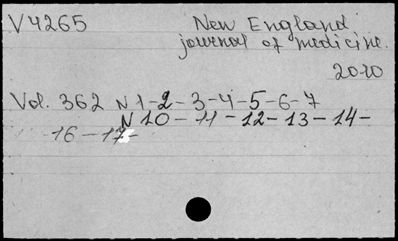 V4265
New England
journal of medicine.
2010
Vol. 362 N 1-2-3-4-5-6-7
N 10-11-12-13-14-
16-17-